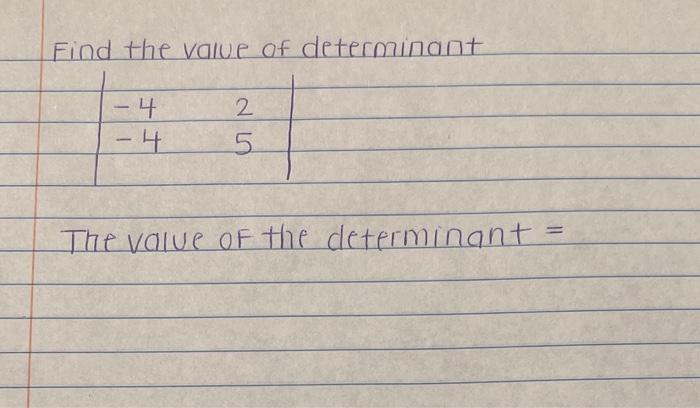 Find the value of determinant
-4 2
-4 5
The value of the determinant =